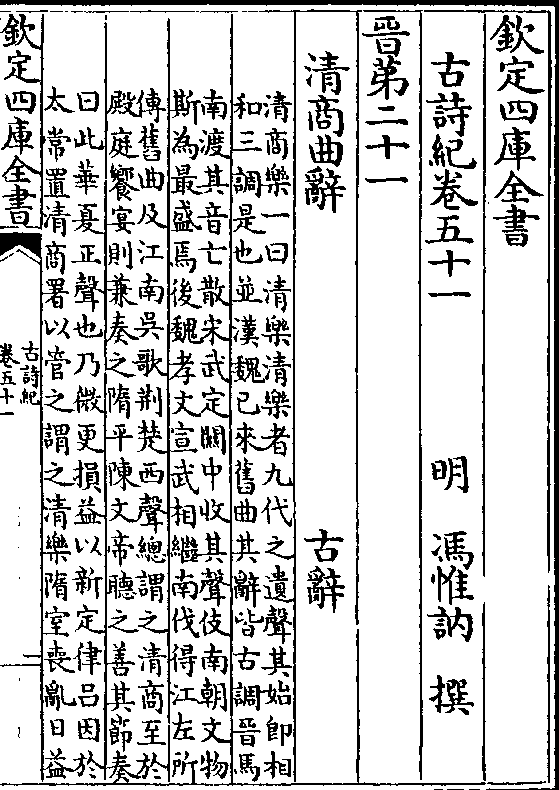 欽定四庫全書
古詩紀卷五十一　明　馮惟訥　撰
晉第二十一
清商曲辭　古辭
清商樂一曰清樂清樂者九代之遺聲其始即相
和三調是也並漢魏已來舊曲其辭皆古調晉馬
南渡其音亡散宋武定關中收其聲伎南朝文物
斯為最盛焉後魏孝文宣武相繼南伐得江左所
傳舊曲及江南吳歌荆楚西聲總謂之清商至於
殿庭饗宴則兼奏之隋平陳文帝聽之善其節奏
曰此華夏正聲也乃微更損益以新定律呂因於
太常置清商署以管之謂之清樂隋室喪亂日益
欽定四庫全書
古詩紀
卷五十一
一